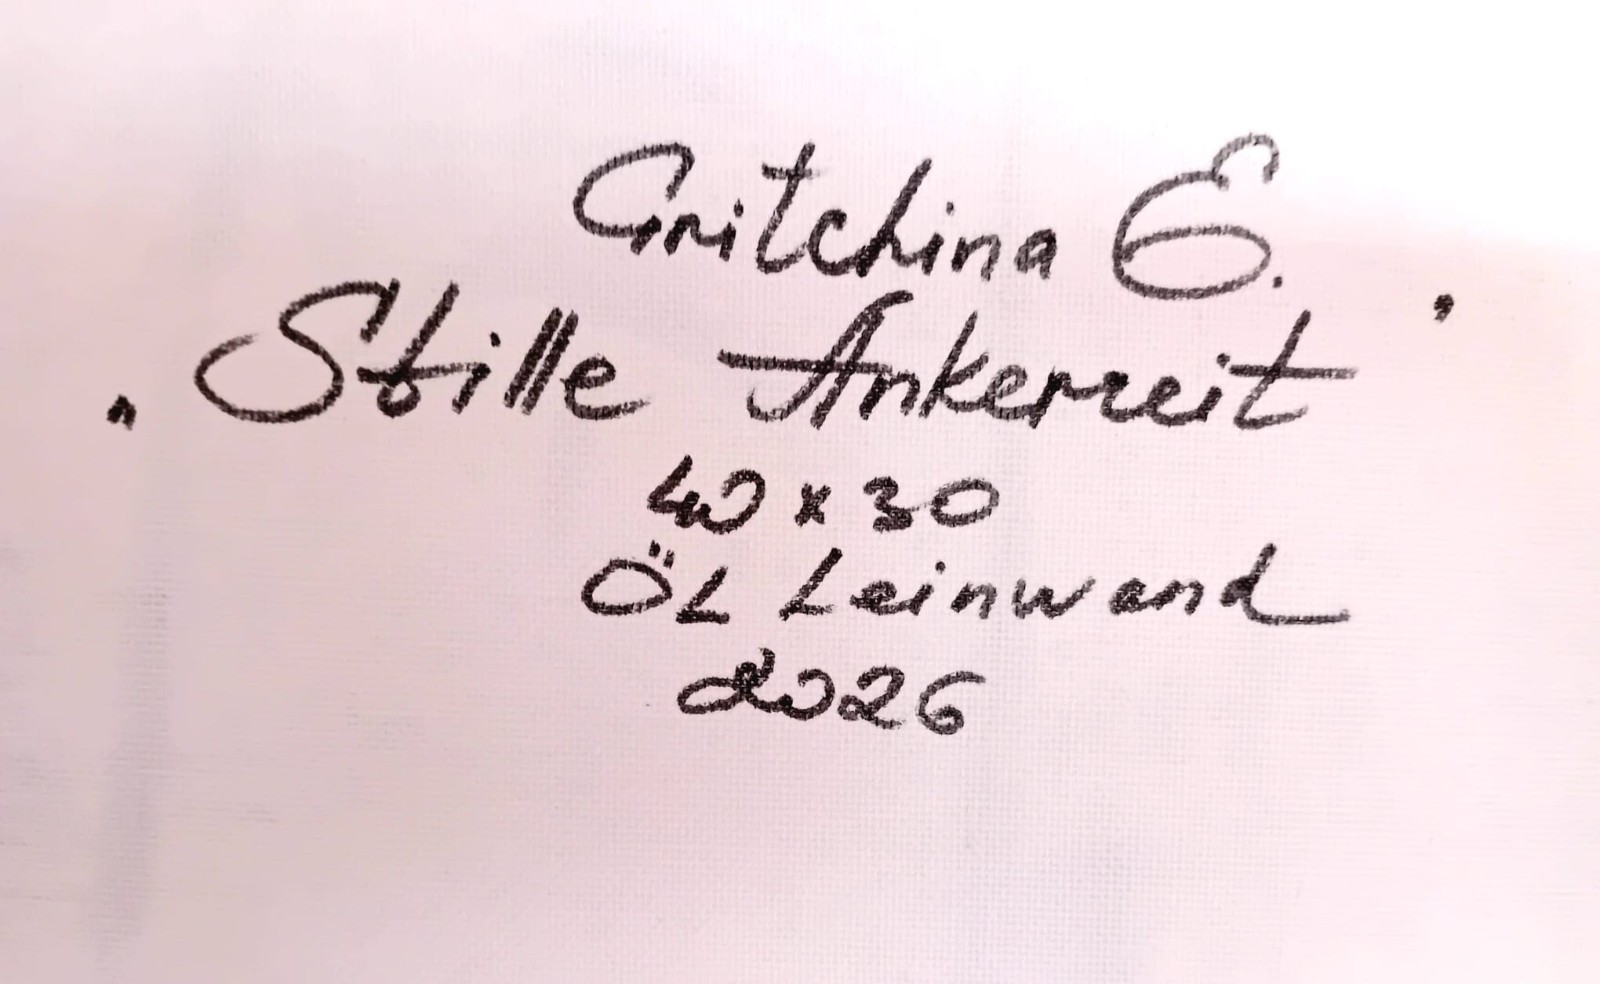 Gritchina E.
"Stille Ankerzeit"
40 x 30
Öl Leinwand
2026